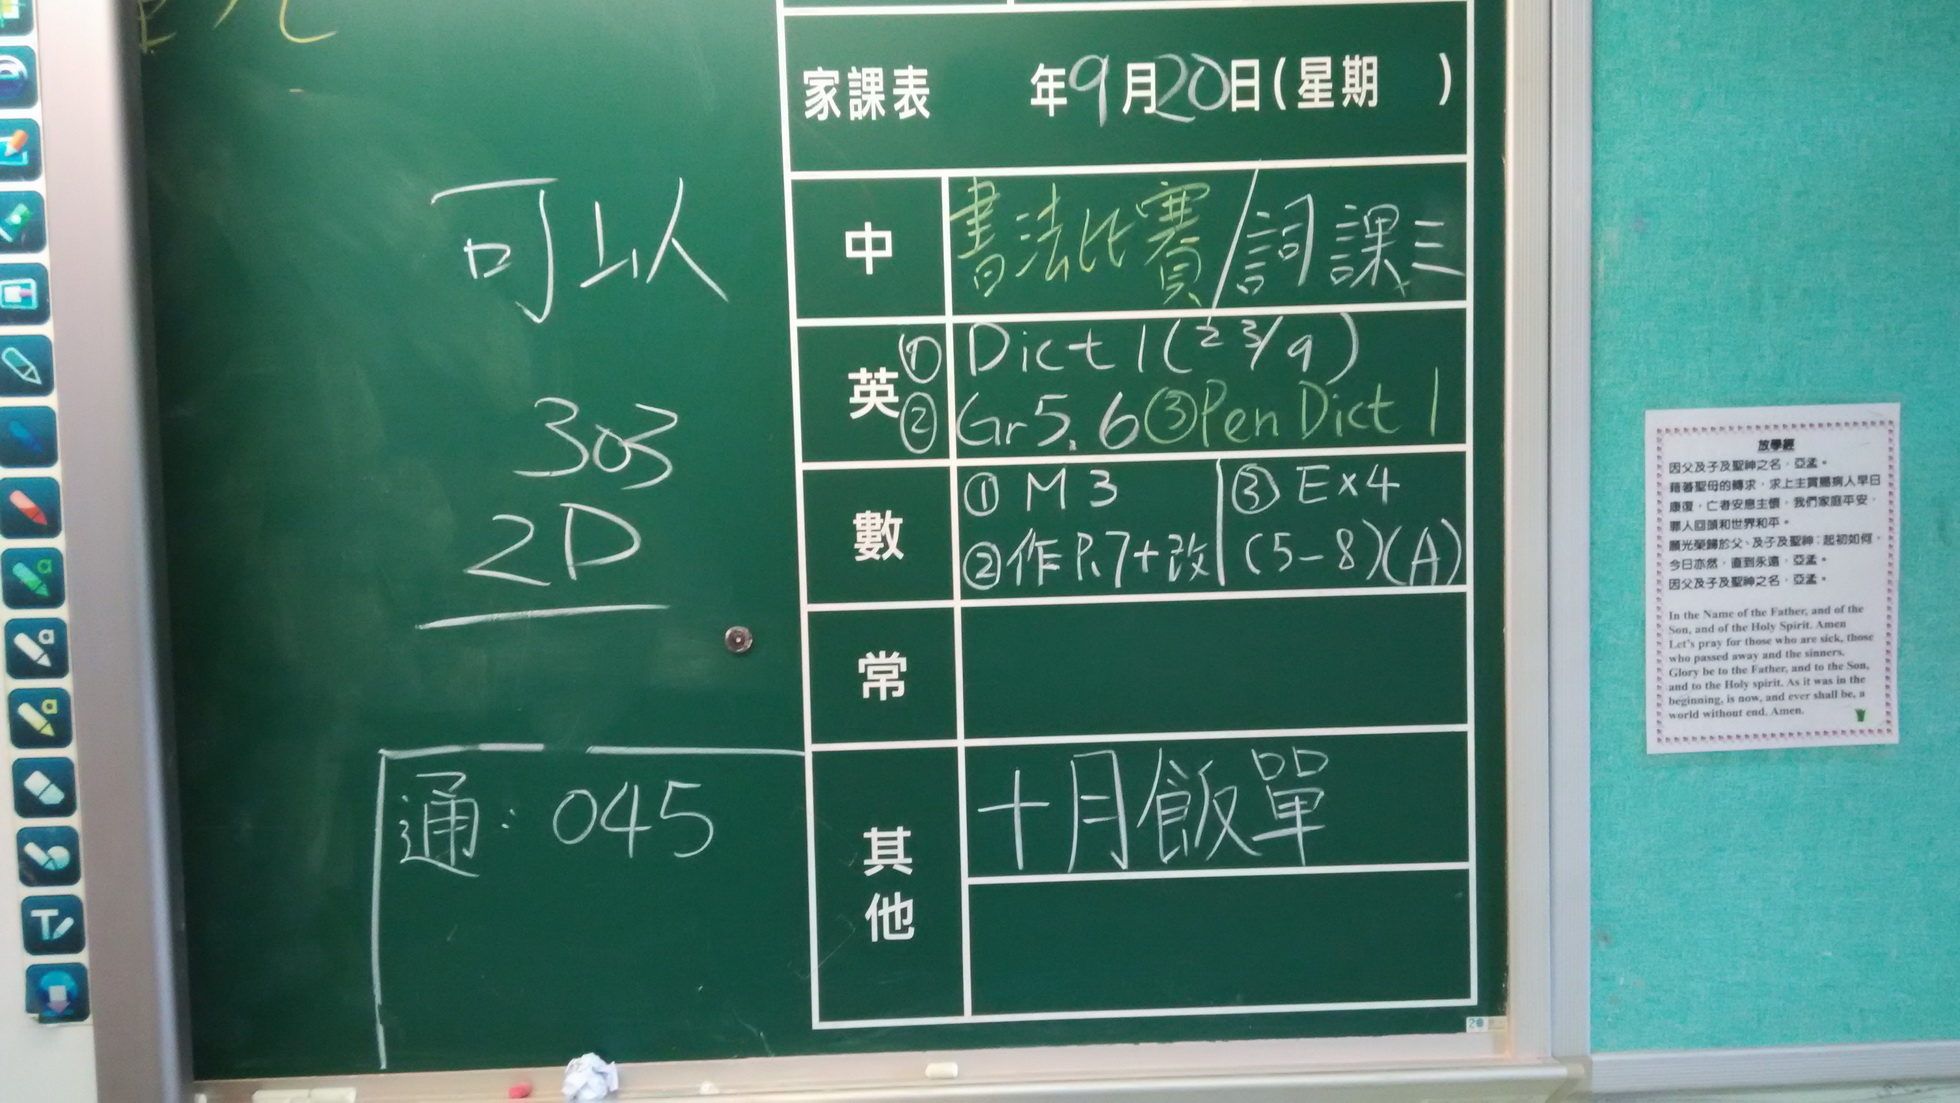 家課表 年9月20日(星期 )
中 書法比賽/詞課三
英 ① Dict 1(23/9)
② Gr 5.6 ③Pen Dict 1
數 ① M 3 ③ Ex4
②作 P.7+改 (5-8)(A)
常
其他 十月飯單
可以
303
2D
通:045
放學經
因父及子及聖神之名，亞孟。
藉著聖母的轉求，求上主賞賜病人早日
康復，亡者安息主懷，我們家庭平安，
罪人回頭和世界和平。
願光榮歸於父、及子及聖神；起初如何，
今日亦然，直到永遠，亞孟。
因父及子及聖神之名，亞孟。
In the Name of the Father, and of the
Son, and of the Holy Spirit. Amen
Let's pray for those who are sick, those
who passed away and the sinners.
Glory be to the Father, and to the Son,
and to the Holy spirit. As it was in the
beginning, is now, and ever shall be, a
world without end. Amen.